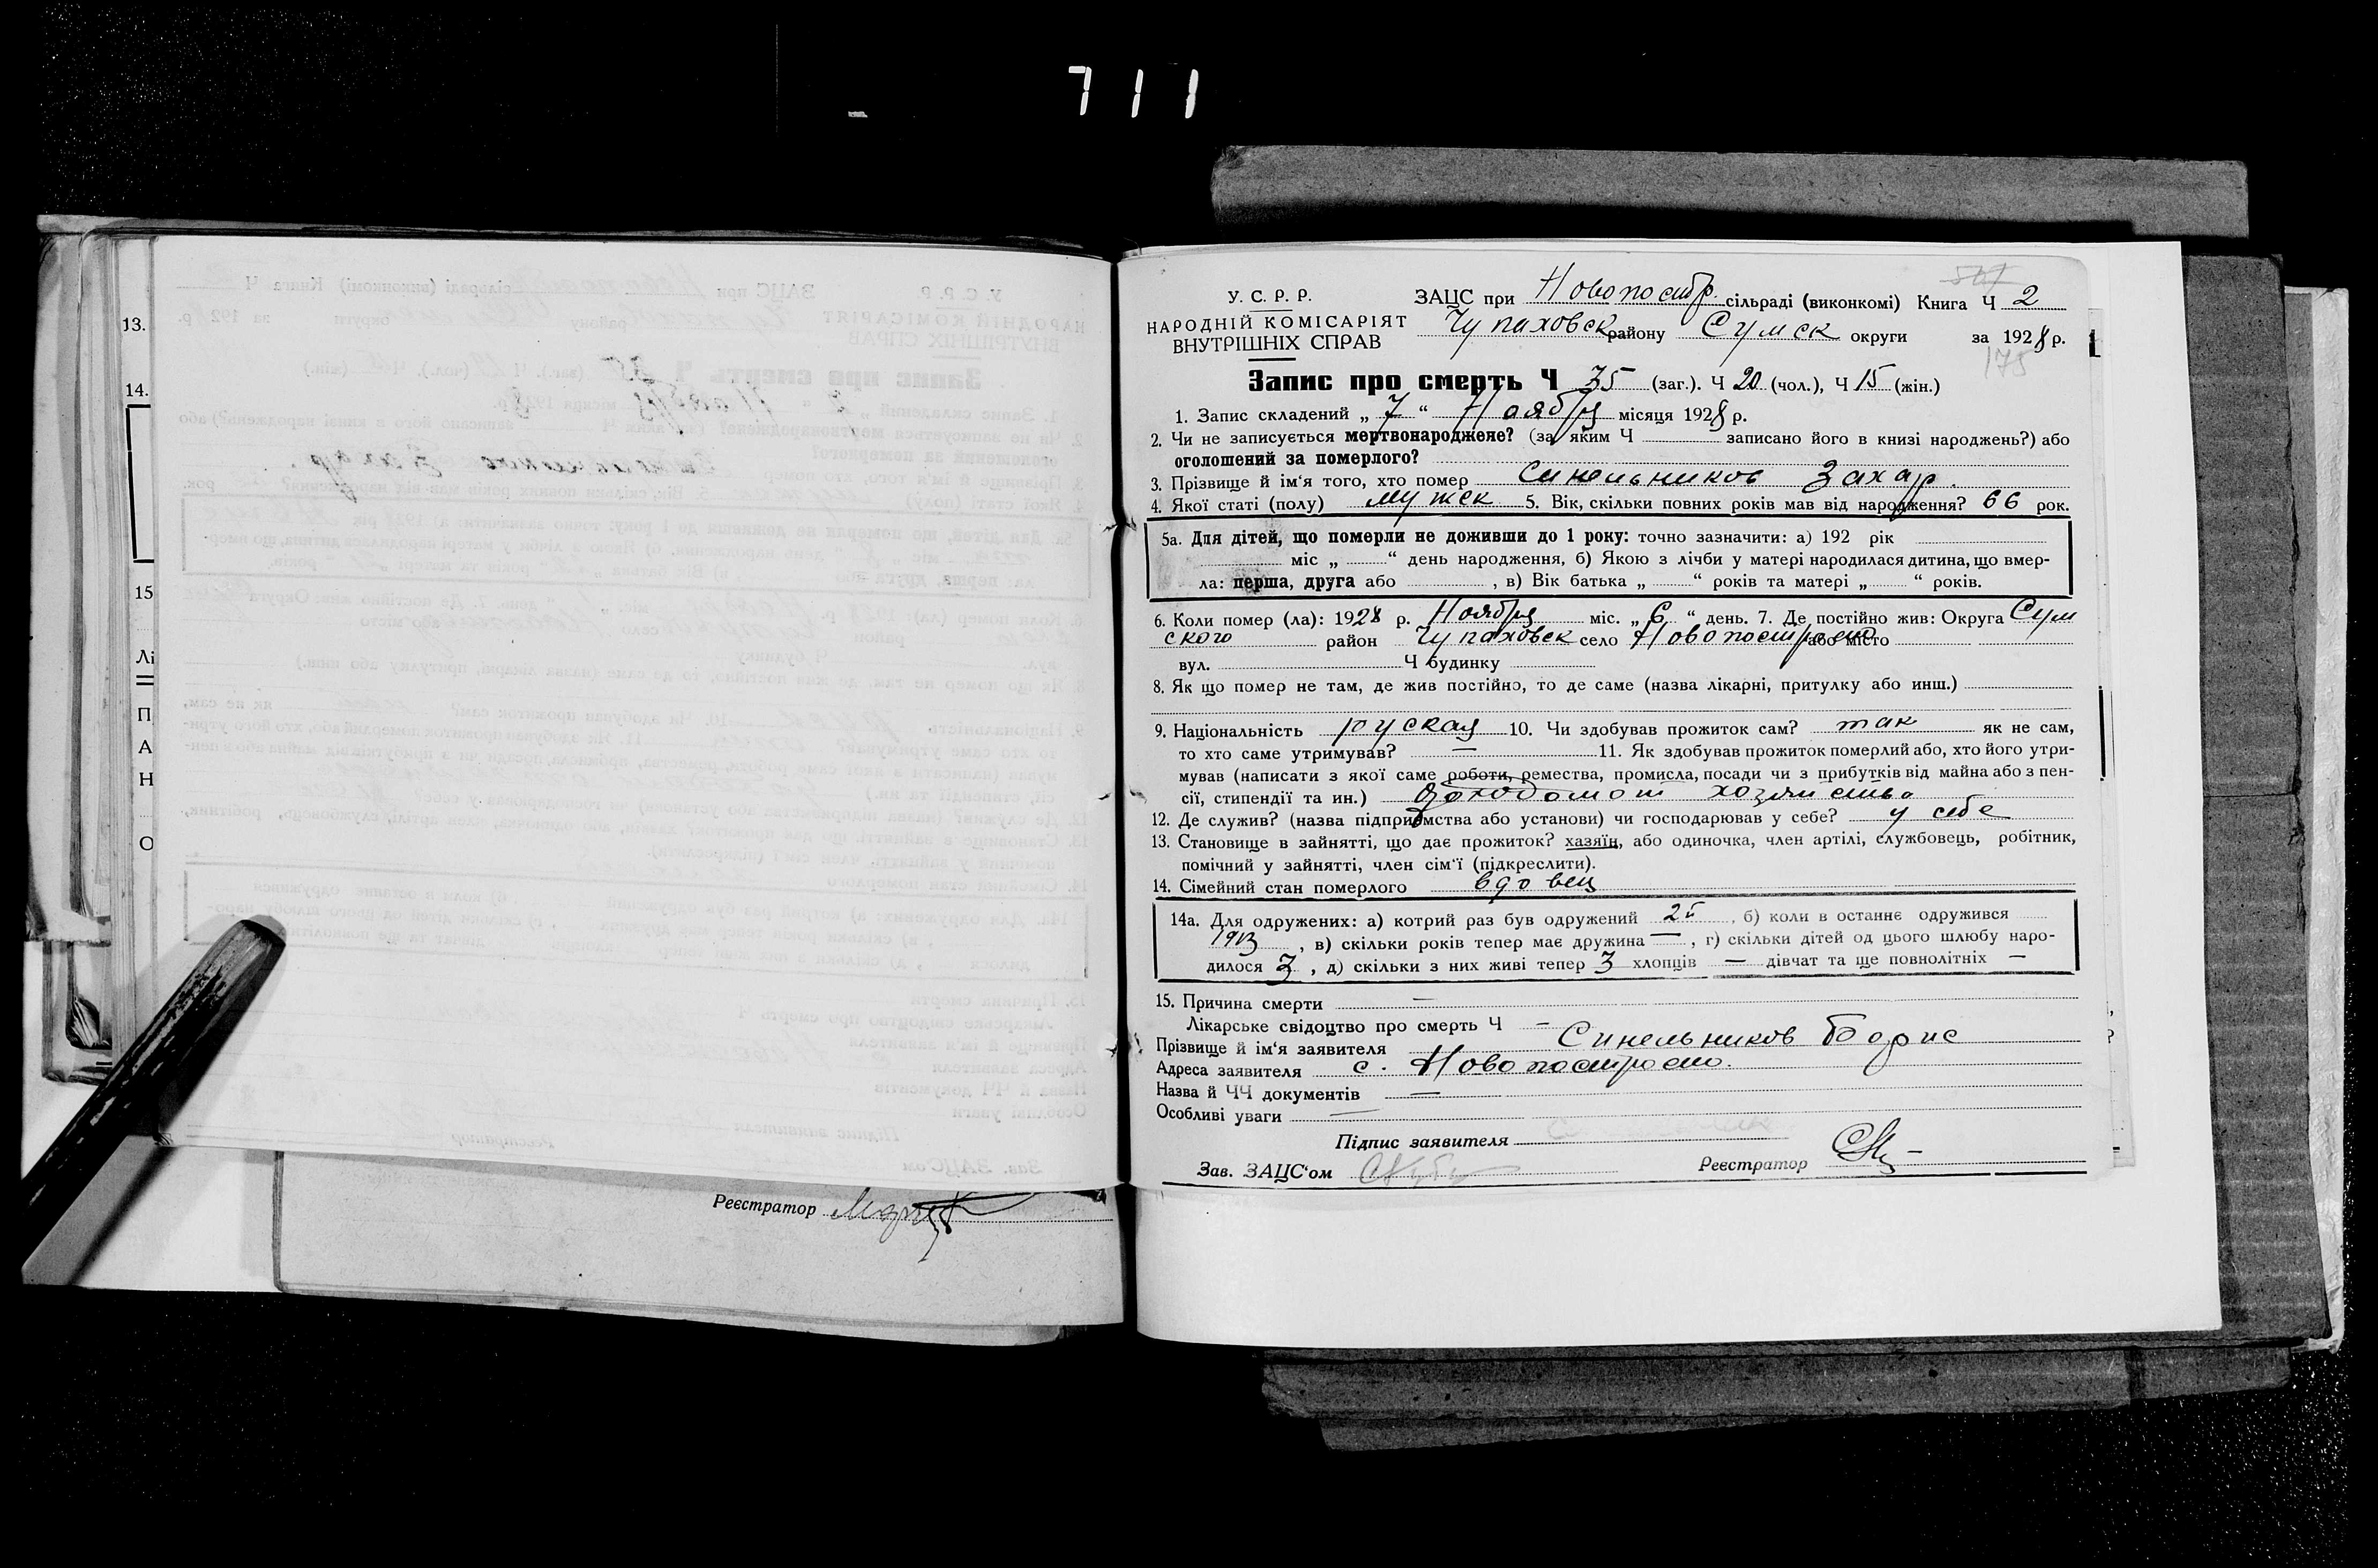 711
13.
14.
15
Лі
П
А
Н
О
Реєстратор
У. С. Р. Р.
НАРОДНІЙ КОМІСАРІЯТ
ВНУТРІШНІХ СПРАВ
ЗАЦС при Новопостр. сільраді (виконкомі) Книга Ч 2
Чупаховск району Сумск округи за 1928 р.
175
Запис про смерть Ч 35 (заг.). Ч 20 (чол.), Ч 15 (жін.)
1. Запис складений „ 7 “ Ноября місяця 1928 р.
2. Чи не записується мертвонароджене? (за яким Ч записано його в книзі народжень?) або
оголошений за померлого?
3. Прізвище й ім'я того, хто помер Синельников Захар.
4. Якої статі (полу) мужск 5. Вік, скільки повних років мав від народження? 66 рок.
5а. Для дітей, що померли не доживши до 1 року: точно зазначити: а) 192 рік
міс „ “ день народження, б) Якою з лічби у матері народилася дитина, що вмер-
ла: перша, друга або , в) Вік батька „ “ років та матері „ “ років.
6. Коли помер (ла): 1928 р. Ноября міс. „ 6 “ день. 7. Де постійно жив: Округа Сум
ского район Чупаховск село Новопостроено або місто
вул. Ч будинку
8. Як що помер не там, де жив постійно, то де саме (назва лікарні, притулку або инш.)
9. Національність руская 10. Чи здобував прожиток сам? так як не сам,
то хто саме утримував? — 11. Як здобував прожиток померлий або, хто його утри-
мував (написати з якої саме роботи, ремества, промисла, посади чи з прибутків від майна або з пен-
сії, стипендії та ин.) доходом от хозяйства
12. Де служив? (назва підприємства або установи) чи господарював у себе? у себе
13. Становище в зайнятті, що дає прожиток? хазяїн, або одиночка, член артілі, службовець, робітник,
помічний у зайнятті, член сім'ї (підкреслити).
14. Сімейний стан померлого вдовец
14а. Для одружених: а) котрий раз був одружений 2й , б) коли в останнє одружився
1913 , в) скільки років тепер має дружина — , г) скільки дітей од цього шлюбу наро-
дилося 3 , д) скільки з них живі тепер 3 хлопців — дівчат та ще повнолітніх —
15. Причина смерти —
Лікарське свідоцтво про смерть Ч —
Прізвище й ім'я заявителя Синельников Борис
Адреса заявителя с. Новопостроено.
Назва й ЧЧ документів —
Особливі уваги —
Підпис заявителя
Зав. ЗАЦС'ом Реєстратор